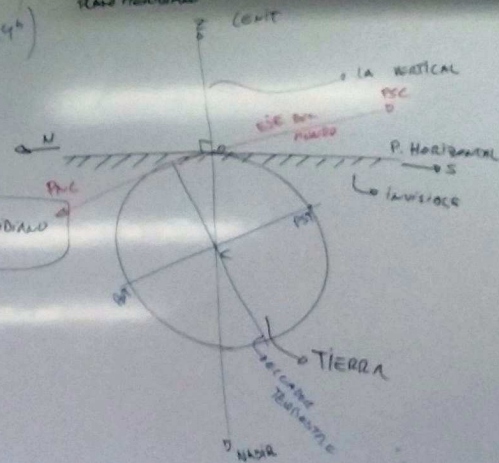 Z
CENIT
LA VERTICAL
PSC
EJE DEL
MUNDO
N
P. HORIZONTAL
S
INVISIBLE
PNC
PST
PNT
TIERRA
ECUADOR
TERRESTRE
NADIR